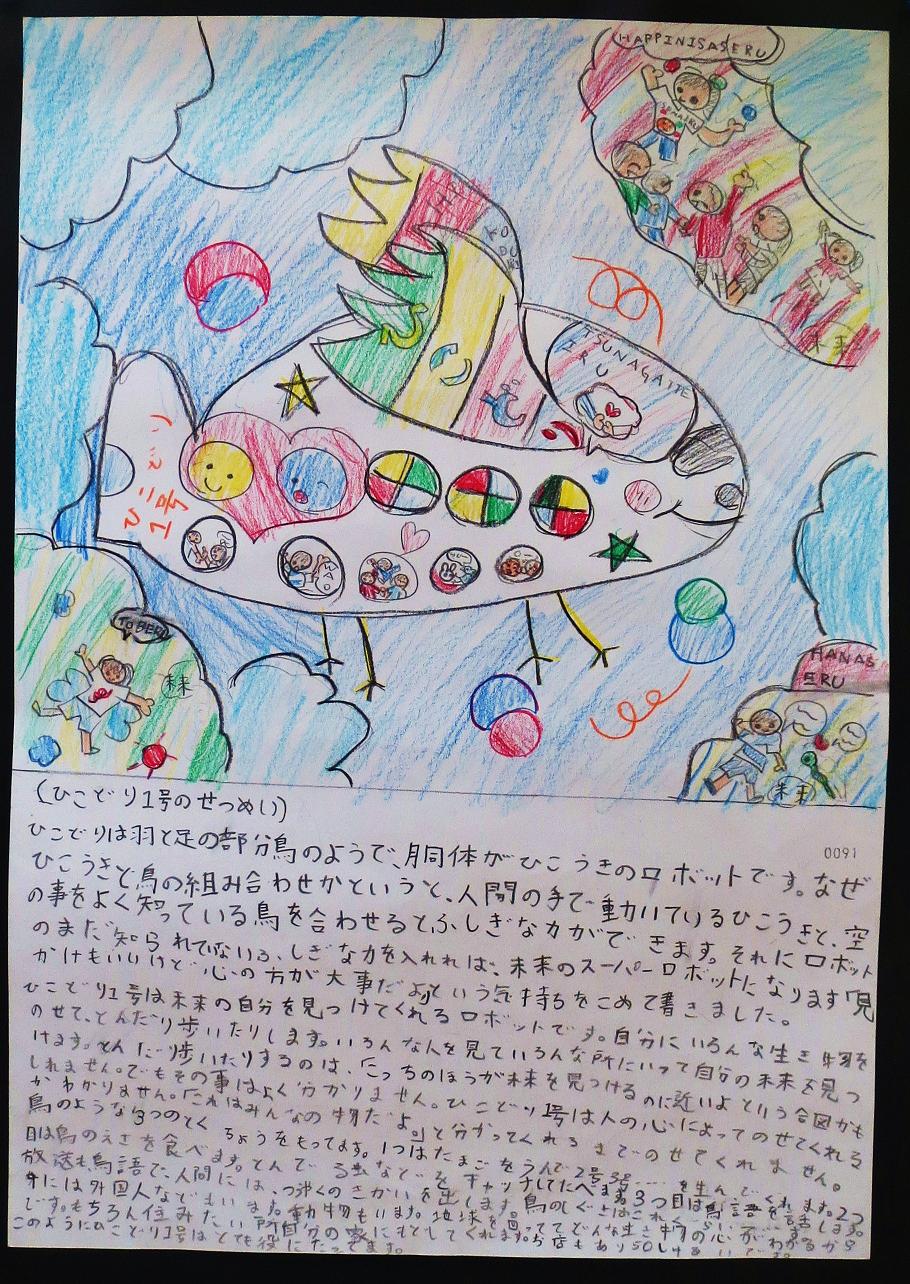 HAPPINISASERU
TSUNAGATTE
IRU
ひこどり
1号
TOBERU
未来
HANAS
ERU
未来
未来
(ひこどり1号のせつめい)
0091
ひこどりは羽と足の部分鳥のようで、胴体がひこうきのロボットです。なぜ
ひこうきと鳥の組み合わせかというと、人間の手で動いているひこうきと、空
の事をよく知っている鳥を合わせるとふしぎな力ができます。それにロボット
のまだ知られてないふしぎな力を入れれば、未来のスーパーロボットになります「見
かけもいいけど心の方が大事だよ」という気持ちをこめて書きました。
ひこどり1号は未来の自分を見つけてくれるロボットです。自分にいろんな生き物を
のせて、とんだり歩いたりします。いろんな人を見ていろんな所にいって自分の未来を見つ
けます。とんだり歩いたりするのは、「こっちのほうが未来を見つけるのに近いよという合図かも
しれません。でもその事はよく分かりません。ひこどり1号は人の心によってのせてくれる
かわかりません。「これはみんなの物だよ。」と分かってくれるまでのせてくれません。
鳥のような3つのとくちょうをもってます。1つはたまごをうんで2号3号……を生んでくれます。2つ
目は鳥のえさを食べます。とんでる虫などをキャッチしてたべます。3つ目は鳥語を話します。
放送も鳥語で、人間には、つやくのきかいを出します。鳥のしぐさ
外には外国人などもいます。動物もいます。地球を回っててどんな生き物の心がわかるから
です。もちろん住みたい所自分の家にもどしてくれます。お店もあり50し
このようにひこどり1号はとても役にたってます。